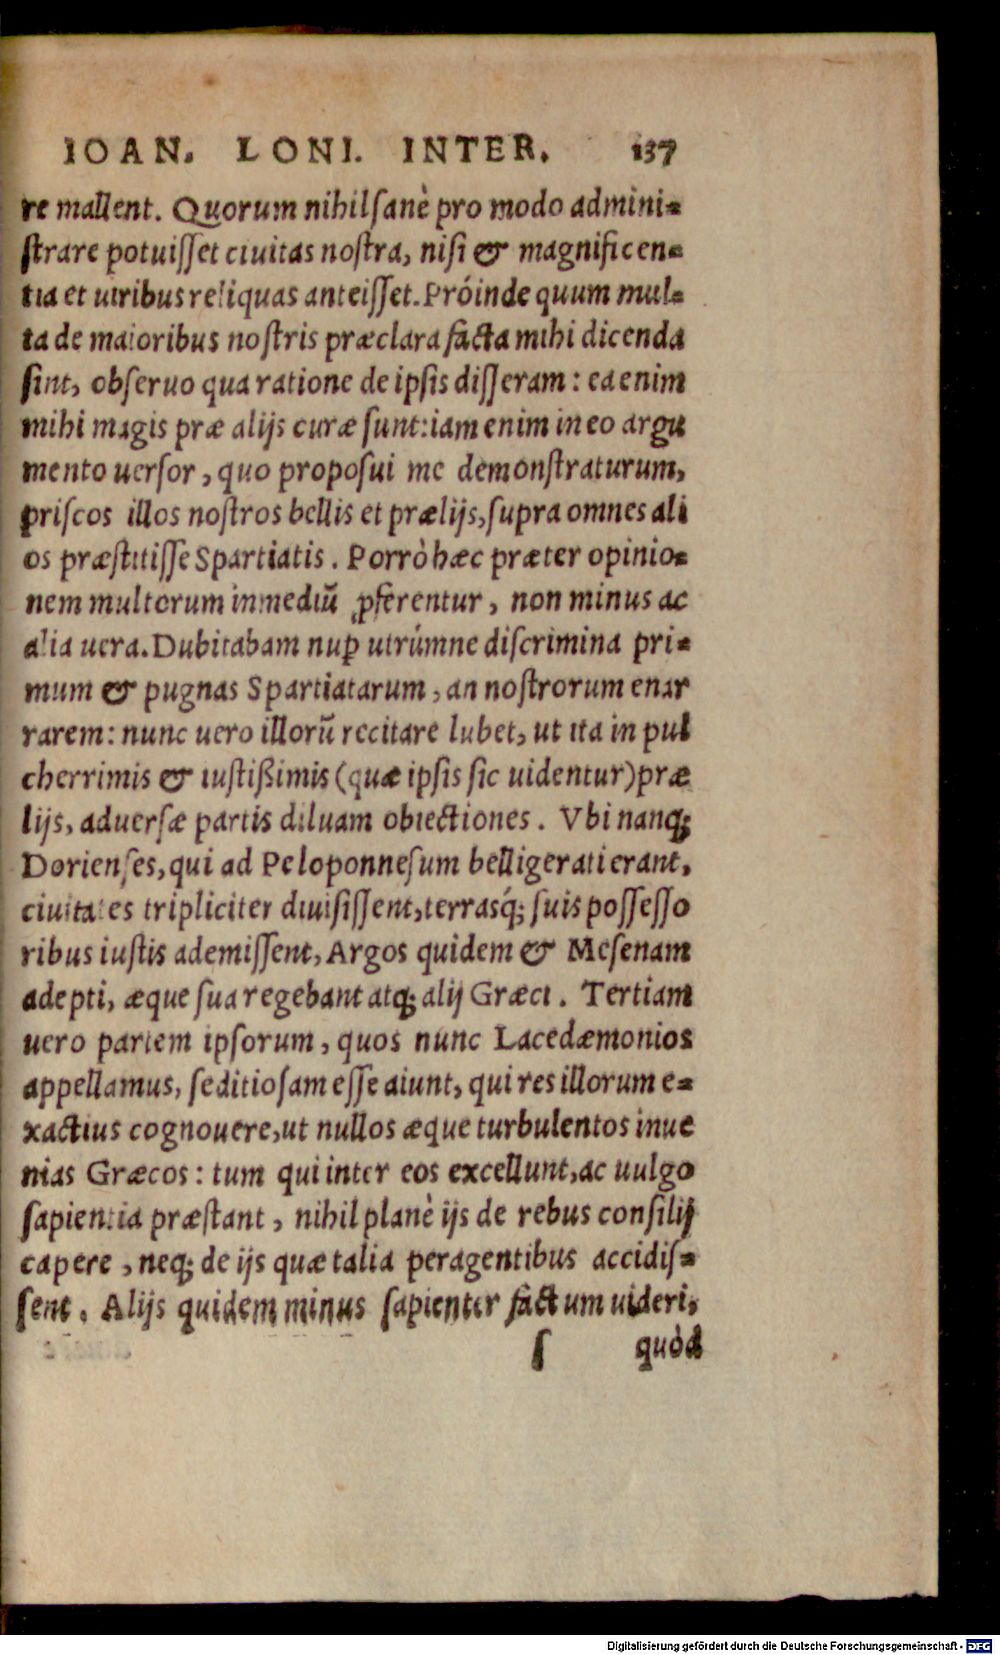 IOAN. LONI. INTER. 137
re mallent. Quorum nihil ſanè pro modo admini-
ſtrare potuiſſet ciuitas noſtra, niſi & magnificen-
tia et uiribus reliquas anteiſſet. Próinde quum mul-
ta de maioribus noſtris præclara facta mihi dicenda
ſint, obſeruo qua ratione de ipſis diſſeram: ea enim
mihi magis præ alijs curæ ſunt: iam enim in eo argu
mento uerſor, quo propoſui me demonſtraturum,
priſcos illos noſtros bellis et prælijs, ſupra omnes ali
os præſtitiſſe Spartiatis. Porrò hæc præter opinio-
nem multorum in mediũ ꝓferentur, non minus ac
alia uera. Dubitabam nuꝑ utrúmne diſcrimina pri-
mum & pugnas Spartiatarum, an noſtrorum enar
rarem: nunc uero illorũ recitare lubet, ut ita in pul
cherrimis & iuſtißimis (quæ ipſis ſic uidentur) præ
lijs, aduerſæ partis diluam obiectiones. Vbi nanq;
Dorienſes, qui ad Peloponneſum belligerati erant,
ciuitates tripliciter diuiſiſſent, terrasq́; ſuis poſſeſſo
ribus iuſtis ademiſſent, Argos quidem & Meſenam
adepti, æque ſua regebant atq; alij Græci. Tertiam
uero partem ipſorum, quos nunc Lacedæmonios
appellamus, ſeditioſam eſſe aiunt, qui res illorum e-
xactius cognouere, ut nullos æque turbulentos inue
nias Græcos: tum qui inter eos excellunt, ac uulgo
ſapientia præſtant, nihil planè ijs de rebus conſilij
capere, neq; de ijs quæ talia peragentibus accidiſ-
ſent. Alijs quidem minus ſapienter factum uideri,
ſ quòd
Digitalisierung gefördert durch die Deutsche Forschungsgemeinschaft - DFG